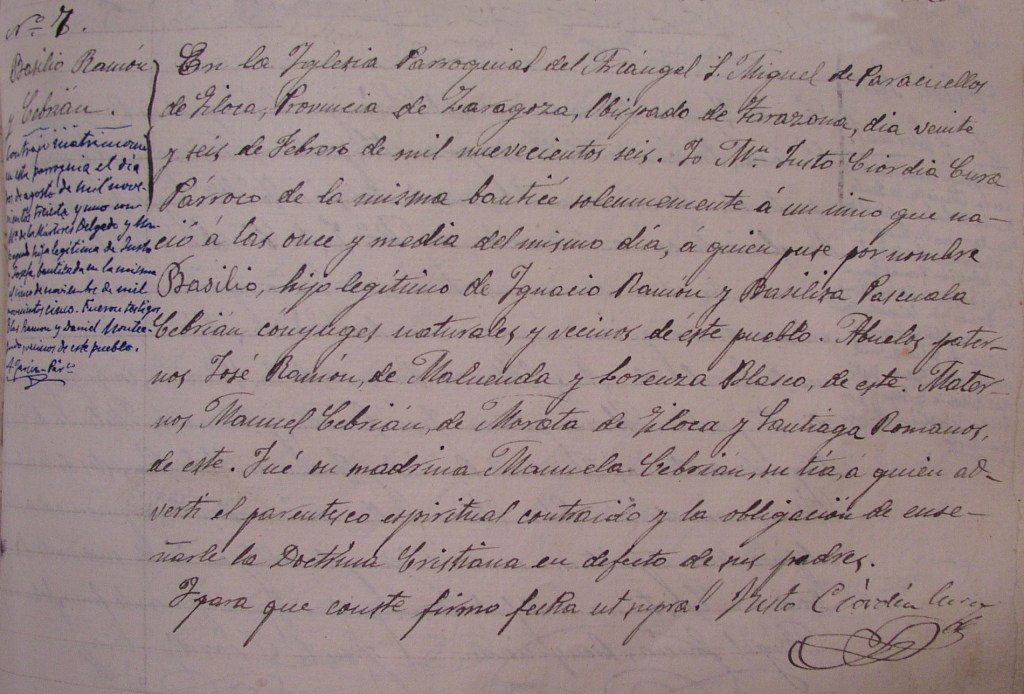 Nº 7.
Basilio Ramón
y Cebrián.
Contrajo matrimonio
en esta parroquia el día
dos de agosto de mil nove-
cientos treinta y uno con
Mª de los Mártires Delgado y
hija legítima de Justo
y Josefa, bautizada en la misma
el cinco de noviembre de mil
novecientos cinco. Fueron testigos
Blas Ramón y Daniel
vecinos de este pueblo.
A. García Párº
En la Yglesia Parroquial del Arcángel S. Miguel de Paracuellos
de Giloca, Provincia de Zaragoza, Obispado de Tarazona, día veinte
y seis de Febrero de mil nuevecientos seis. Yo Mn. Justo Ciordia Cura
Párroco de la misma bauticé solemnemente á un niño que na-
ció á las once y media del mismo día, á quien puse por nombre
Basilio, hijo legítimo de Ygnacio Ramón y Basilisa Pascuala
Cebrián conyuges naturales y vecinos de éste pueblo. Abuelos pater-
nos José Ramón, de Maluenda y Lorenza Blasco, de este. Mater-
nos Manuel Cebrián, de Morata de Giloca y Santiaga Romanos,
de este. Fué su madrina Manuela Cebrián, su tía, á quien ad-
vertí el parentesco espiritual contraido y la obligación de ense-
ñarle la Doctrina Cristiana en defecto de sus padres.
Y para que conste firmo fecha ut supra. Justo Ciordia Cura